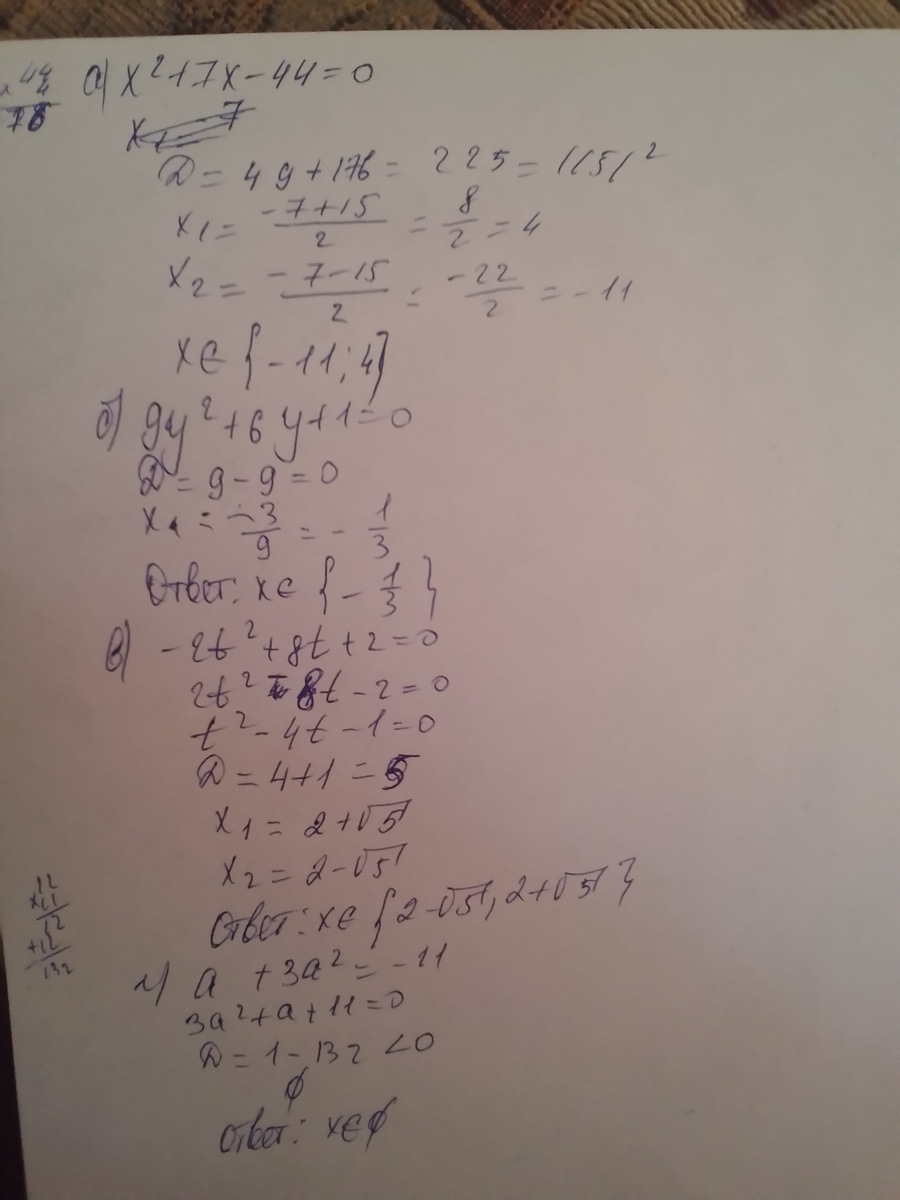 44
× 4
176
а) x²+7x-44=0
D = 49+176 = 225 = (15)²
x₁ = (-7+15)/2 = 8/2 = 4
x₂ = (-7-15)/2 = -22/2 = -11
x∈{-11;4}
б) 9y²+6y+1=0
D = 9-9=0
x₁ = -3/9 = -1/3
Ответ: x∈{-1/3}
в) -2t²+8t+2=0
2t²-8t-2=0
t²-4t-1=0
D=4+1=5
x₁ = 2+√5
x₂ = 2-√5
Ответ: x∈{2-√5, 2+√5}
12
×11
12
+12
132
г) a +3a² = -11
3a²+a+11=0
D = 1-132 <0
∅
Ответ: x∈∅